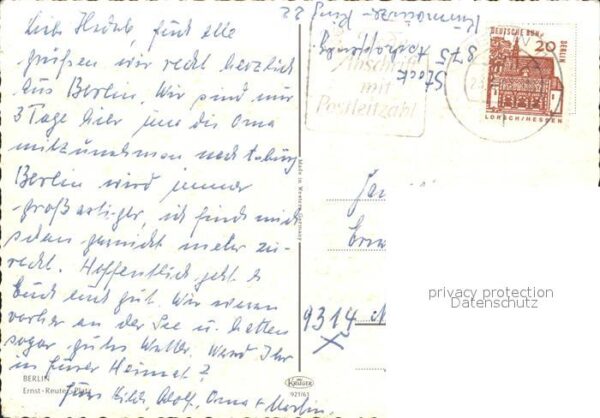 Liebe Hedels, Euch alle
grüßen wir recht herzlich
aus Berlin. Wir sind nur
3 Tage hier, um die Oma
mitzunehmen nach
Berlin wird immer
großartiger, ich finde mich
schon garnicht mehr zu-
recht. Hoffentlich geht es
Euch auch gut. Wir waren
vorher an der See u. hatten
sogar gutes Wetter. Ward Ihr
in Eurer Heimat?
Eure Hilde, Adolf, Oma +
BERLIN
Ernst-Reuter-Platz
875
Ring 22
Anschrift
mit
Postleitzahl
DEUTSCHE BUNDESPOST
BERLIN
20
LORSCH/HESSEN
Made in Western Germany
9314
privacy protection
Datenschutz
Krüger
921/61